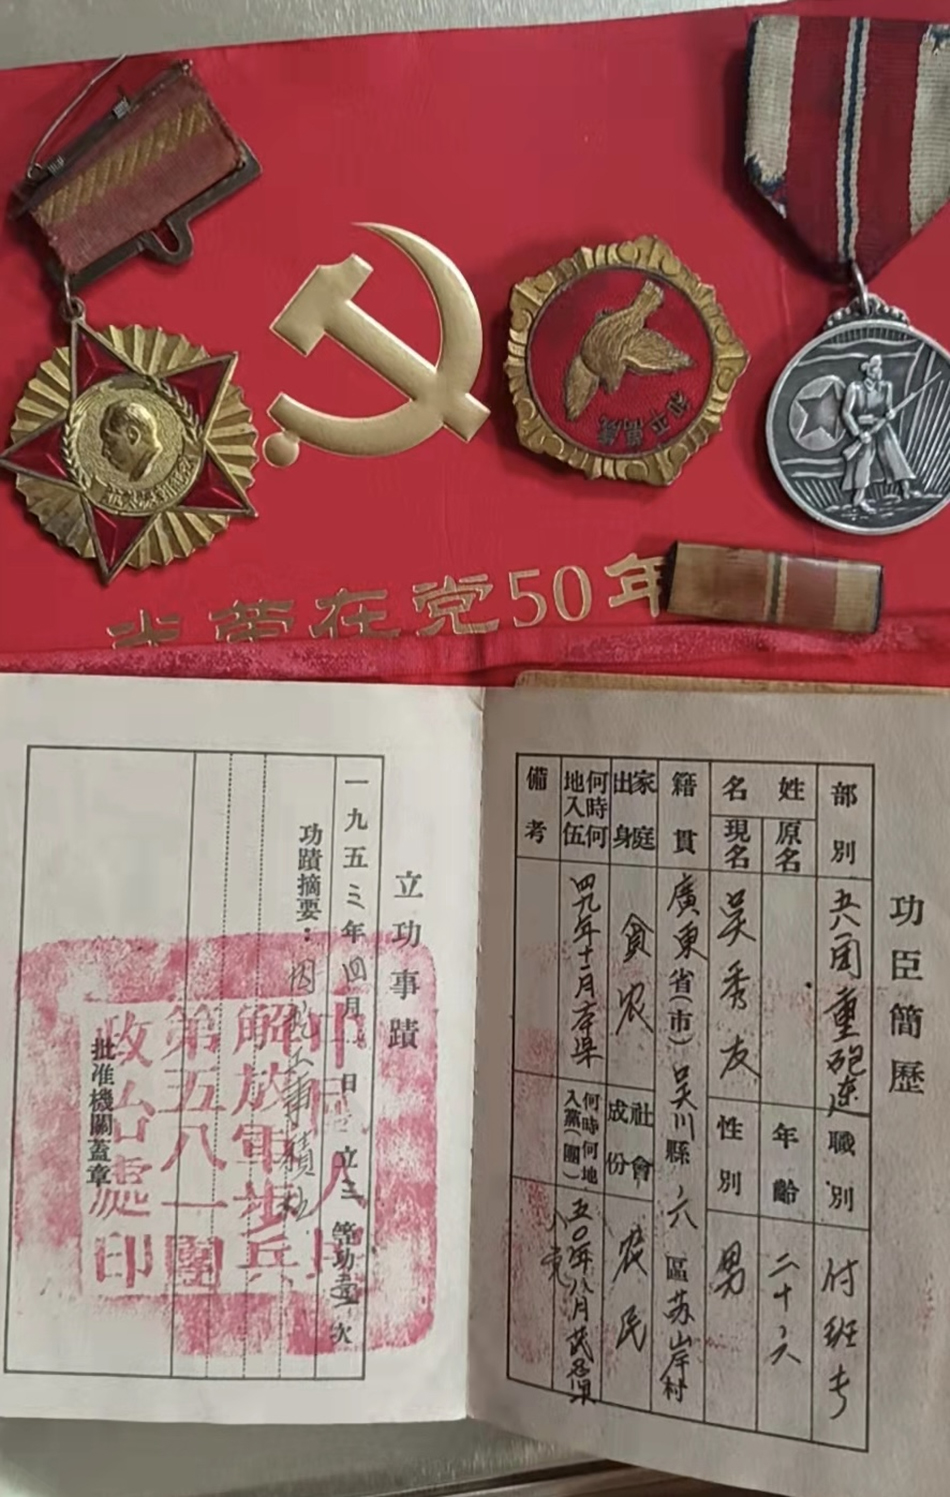 光荣在党50年
和平萬歲
功臣簡歷
部別 五八一团重砲连 職別 付班长
姓名 原名 年齡 二十六
現名 吴秀友 性別 男
籍貫 廣東省(市)吴川縣六區苏岸村
家庭出身 貧农 社會成份 农民
何時何地入伍 四九年十二月 何時何地入黨(團) 五〇年八月
備考
立功事蹟
一九五三年四月 日立三等功壹次
功蹟摘要:
批准機關蓋章
中國人民
解放軍步兵
第五八一團
政治處印